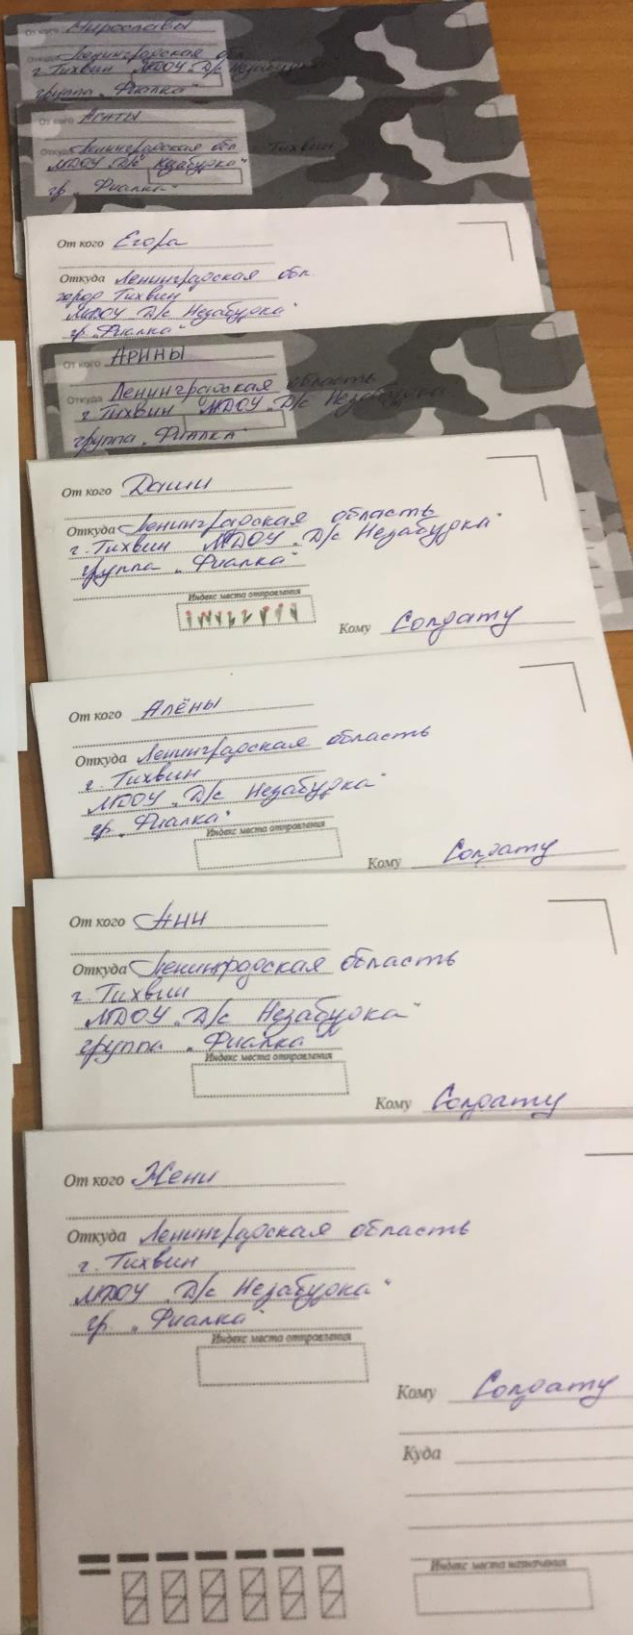 От кого Мирославы
Откуда Ленинградская обл.
г. Тихвин МДОУ "Д/с Незабудка"
группа "Фиалка"
От кого Агаты
Откуда Ленинградская обл. г. Тихвин
МДОУ "Д/с Незабудка"
гр. "Фиалка"
От кого Егора
Откуда Ленинградская обл.
город Тихвин
МДОУ "Д/с Незабудка"
гр. "Фиалка"
От кого Арины
Откуда Ленинградская область
г. Тихвин МДОУ "Д/с Незабудка"
группа "Фиалка"
От кого Даши
Откуда Ленинградская область
г. Тихвин МДОУ "Д/с Незабудка"
группа "Фиалка"
Индекс места отправления
Кому Солдату
От кого Алёны
Откуда Ленинградская область
г. Тихвин
МДОУ "Д/с Незабудка"
гр. "Фиалка"
Индекс места отправления
Кому Солдату
От кого Ани
Откуда Ленинградская область
г. Тихвин
МДОУ "Д/с Незабудка"
группа "Фиалка"
Индекс места отправления
Кому Солдату
От кого Жени
Откуда Ленинградская область
г. Тихвин
МДОУ "Д/с Незабудка"
гр. "Фиалка"
Индекс места отправления
Кому Солдату
Куда
Индекс места назначения